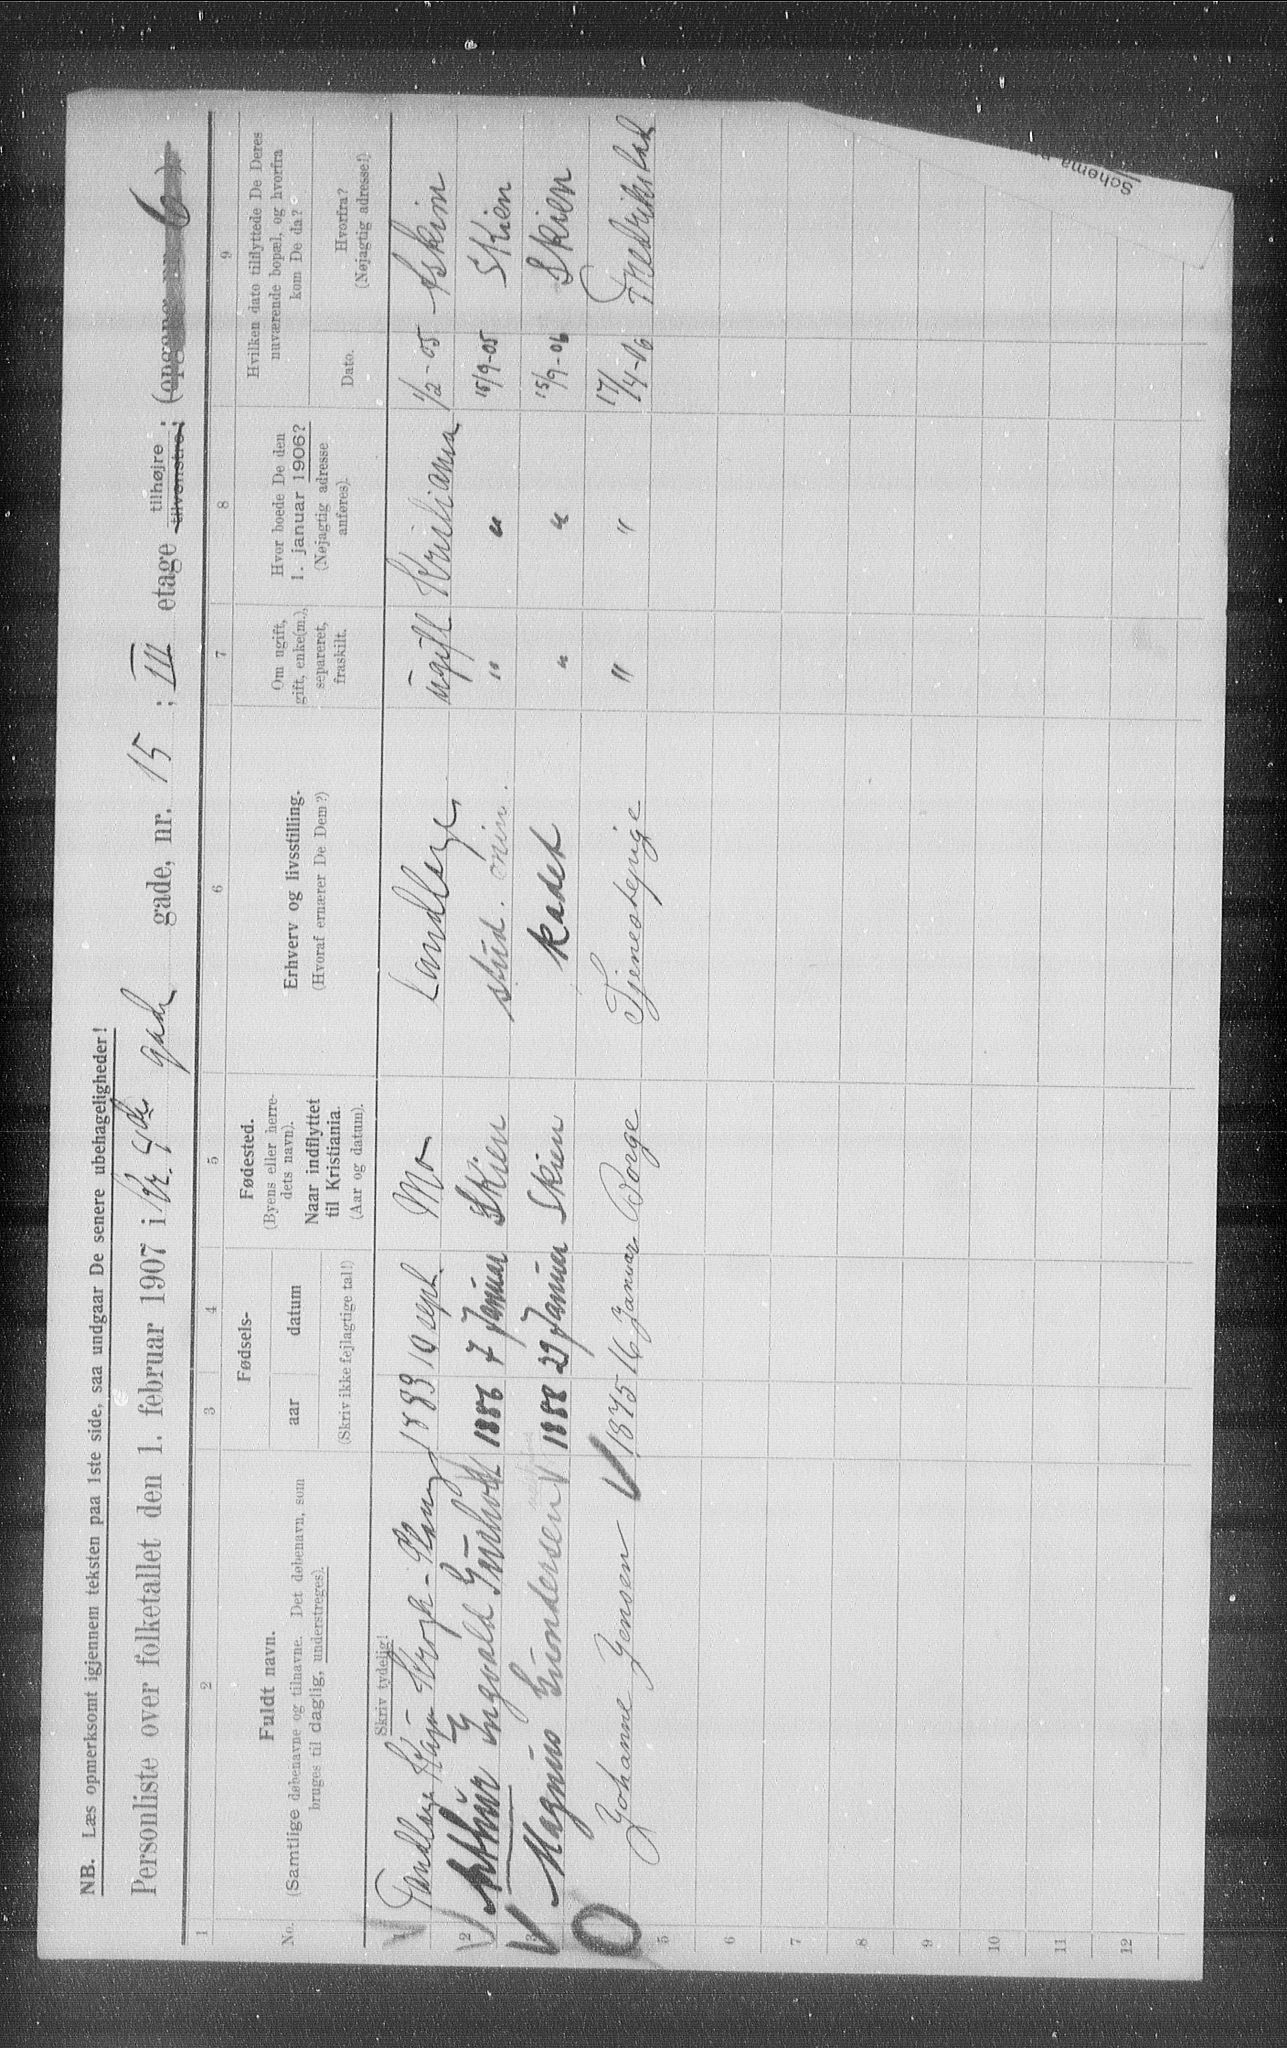 NB. Læs opmerksomt igjennem teksten paa 1ste side, saa undgaar De senere ubehageligheder!
Personliste over folketallet den 1. februar 1907 i Kr. 4des gade gade, nr. 15 ; III etage tilhøjre tilvenstre ; (opgang nr. 6)
1 2 3 4 5 6 7 8 9
No. Fuldt navn.
(Samtlige døbenavne og tilnavne. Det døbenavn, som
bruges til daglig, understreges).
Skriv tydelig!
Fødsels-
aar datum
(Skriv ikke fejlagtige tal!)
Fødested.
(Byens eller herre-
dets navn).
Naar indflyttet
til Kristiania.
(Aar og datum).
Erhverv og livsstilling.
(Hvoraf ernærer De Dem?)
Om ugift,
gift, enke(m.),
separeret,
fraskilt.
Hvor boede De den
1. januar 1906?
(Nøjagtig adresse
anføres).
Hvilken dato tilflyttede De Deres
nuværende bopæl, og hvorfra
kom De da?
Dato. Hvorfra?
(Nøjagtig adresse!)
Tandlæge Krogh 1883 19 sept. Mo Tandlæge ugift Kristiania 1/2-05 Askim
2 Arthur Ingvald 1886 7 Januar Skien stud. min. " " 15/9-05 Skien
3 Magnus Gundersen 1888 29 Januar Skien kadet " " 15/9-06 Skien
Johanne Jensen 1875 16 Januar Borge Tjenestepige " " 17/4-06 Fredrikstad
5
6
7
8
9
10
11
12
Schema